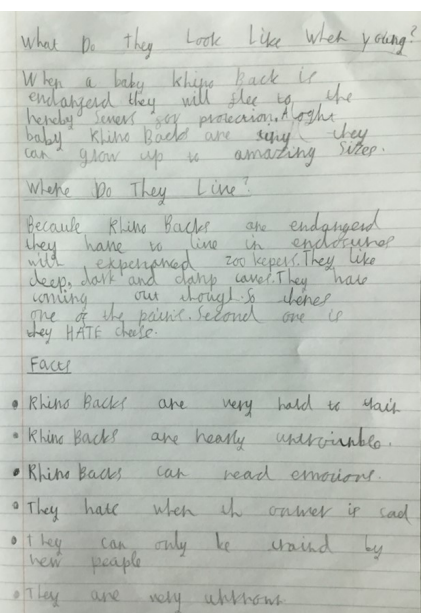 What Do They Look Like When young?
When a baby Rhino Back is
endangerd they will flee to the
nereby sewers for protecrion. Aloght
baby Rhino Backs are tiny they
can grow up to amazing sizes.
Where Do They Live?
Because Rhino Backs are endangerd
they have to live in endosures
with experianced zoo kepers. They like
deep, dark and damp caves. They hate
coming out though. So theres
one of the points. Second one is
they HATE cheese.
Facts
• Rhino Backs are very hard to train
• Rhino Backs are nearly untrainble.
• Rhino Backs can read emotions.
• They hate when th owner is sad
• They can only be traind by
new peaple
• They are very unknown